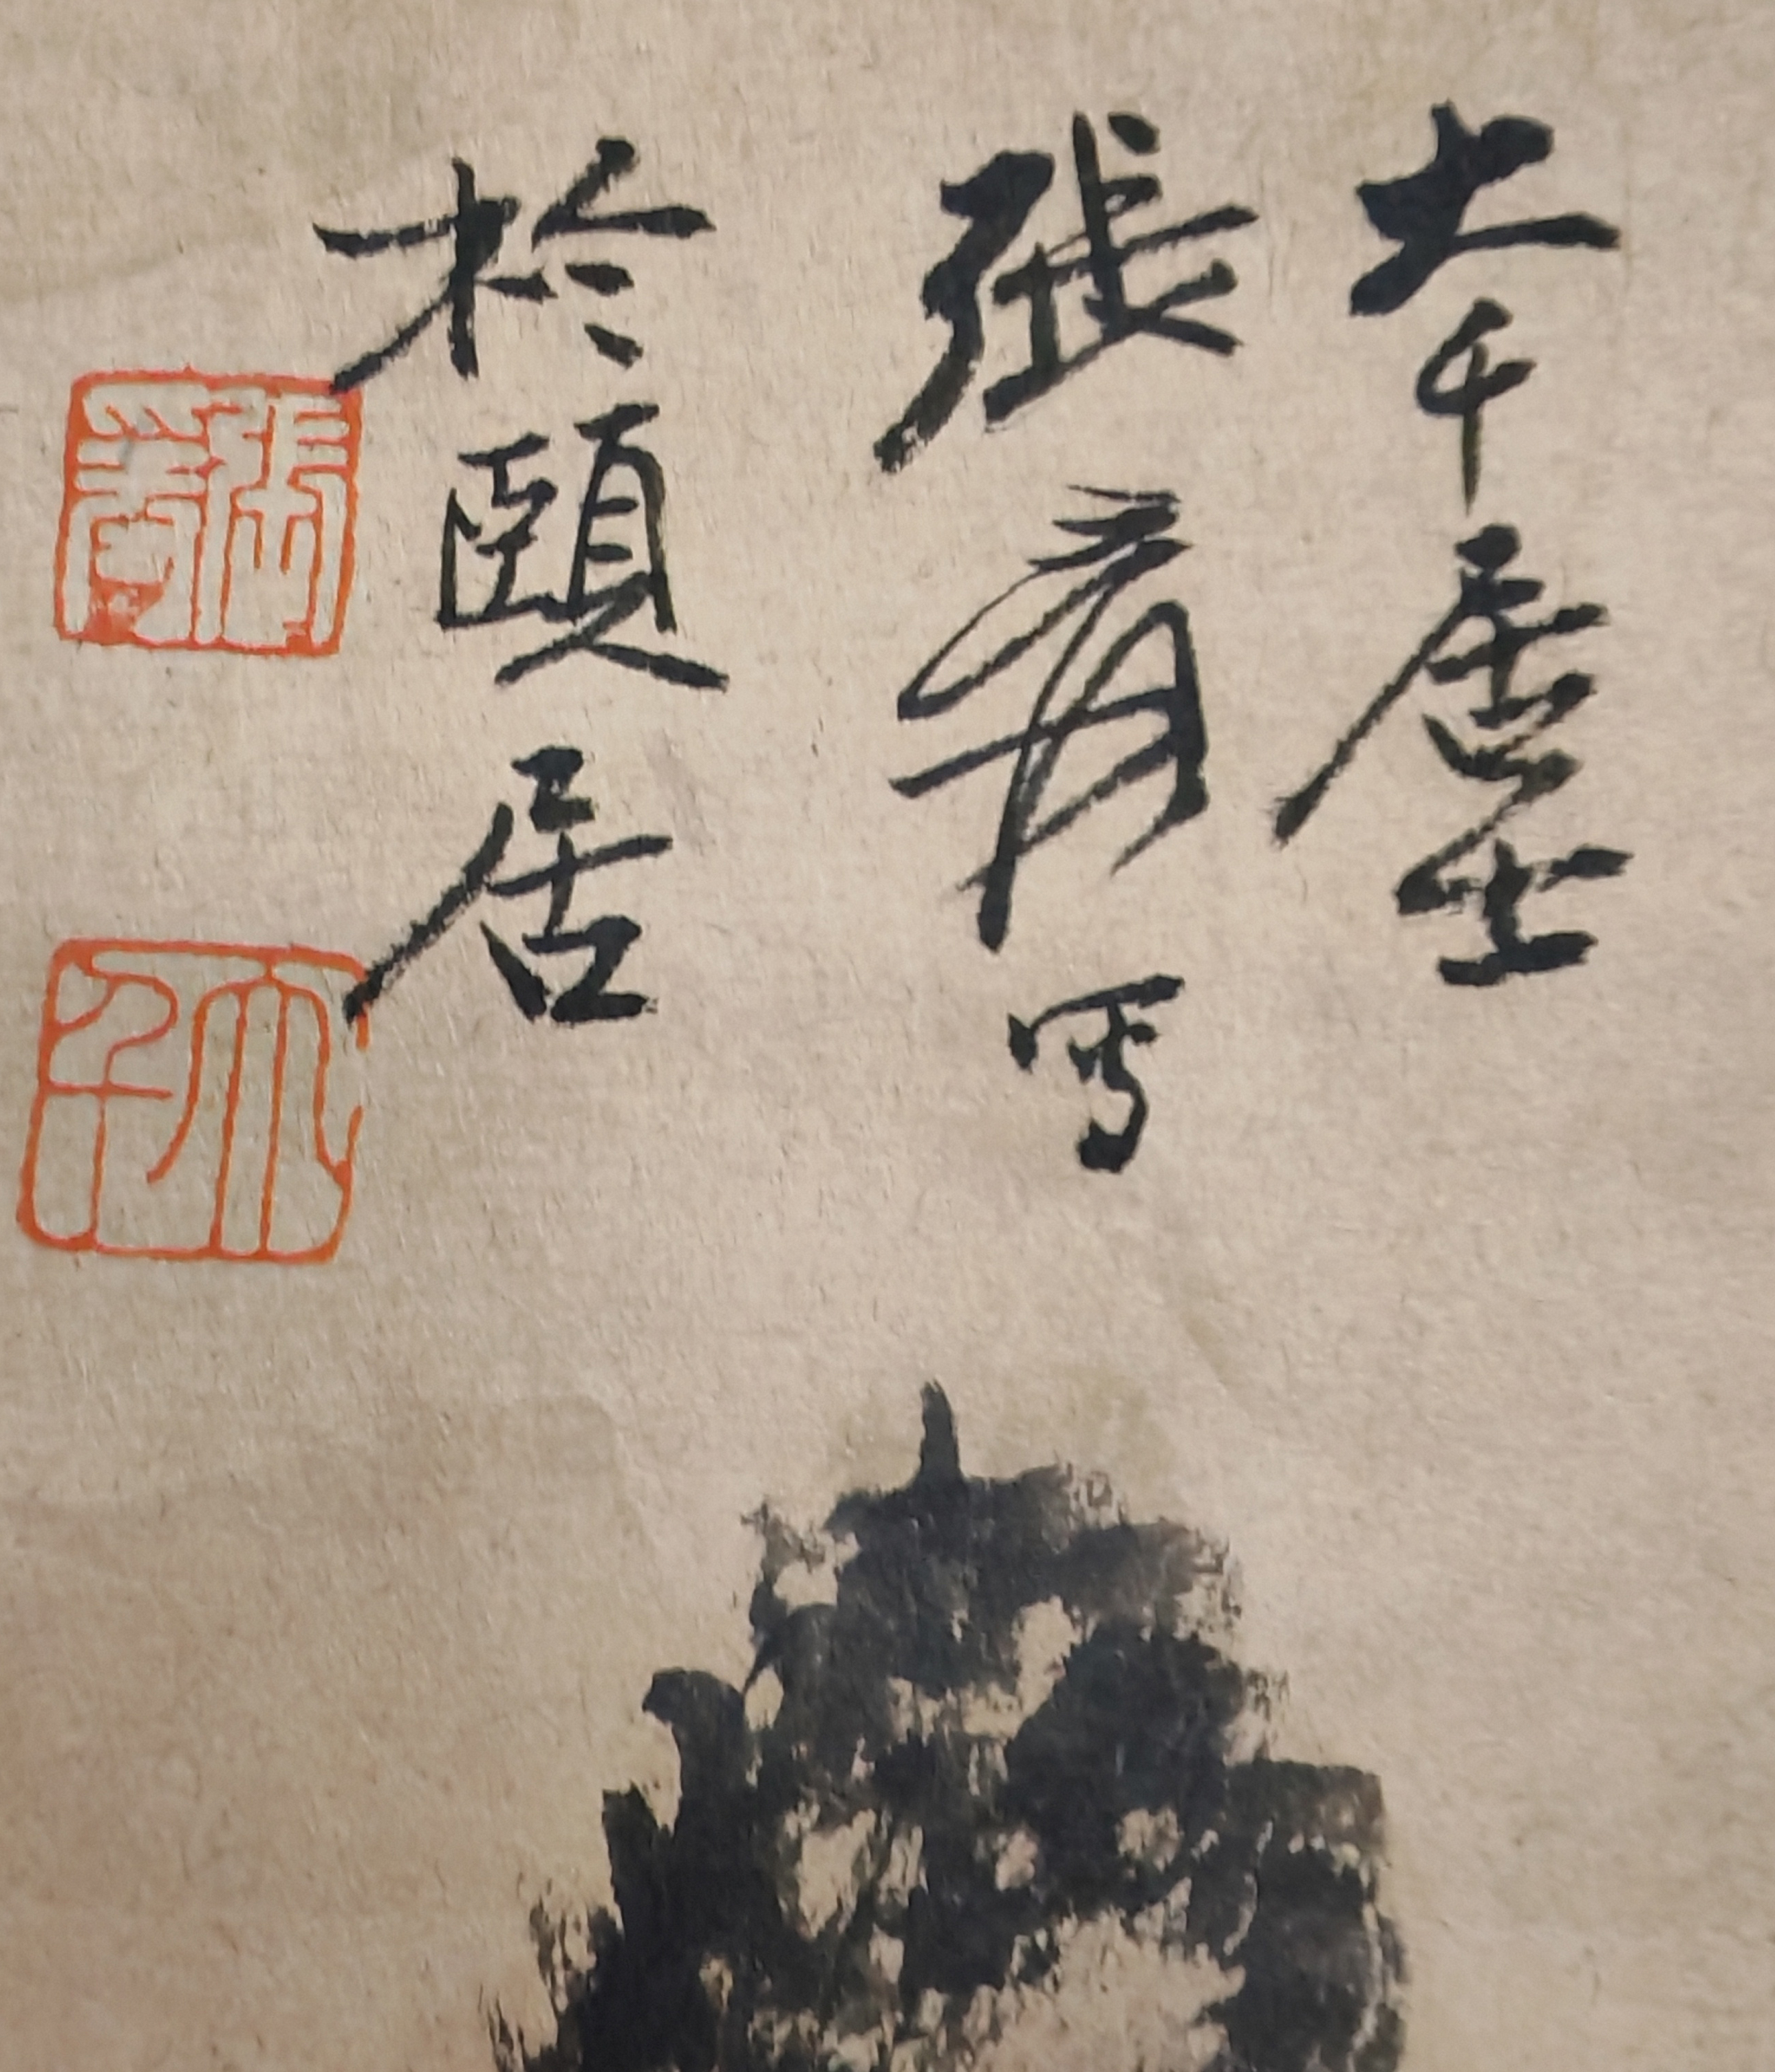 大千居士
張爰写
於頤居
張爰
大千